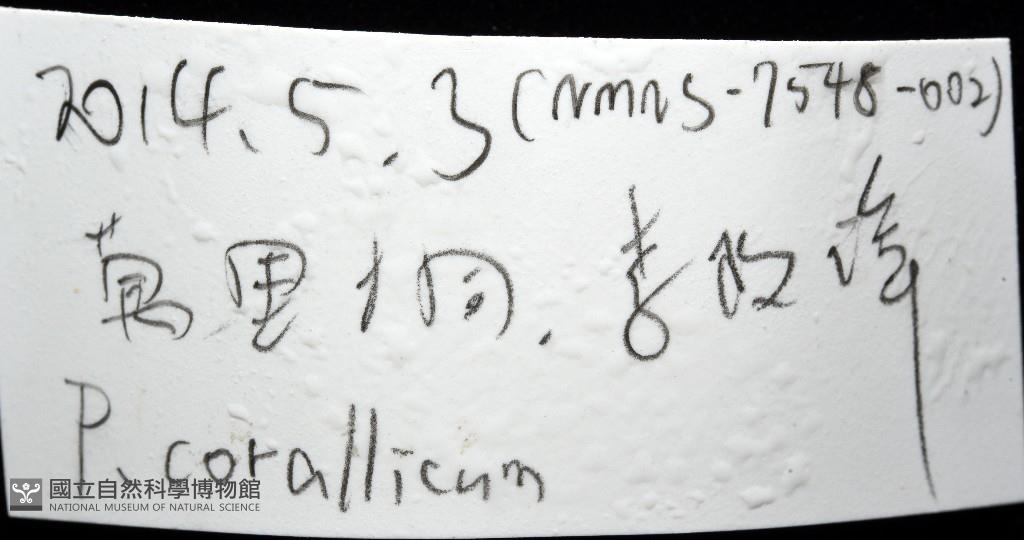 2014.5.3 (NMNS-7548-002)
萬里桐. 李政璋
P. corallicum
國立自然科學博物館
NATIONAL MUSEUM OF NATURAL SCIENCE